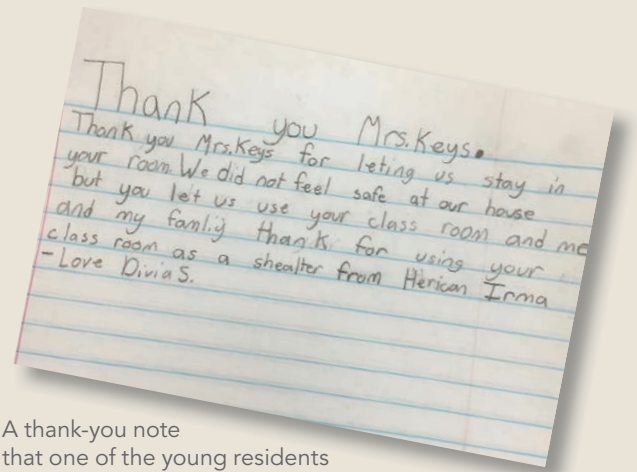 Thank you Mrs.Keys.
Thank you Mrs.Keys for leting us stay in
your room. We did not feel safe at our house
but you let us use your class room and me
and my famliy thank for using your
class room as a shealter from Herican Irma
-Love Divia S.
A thank-you note
that one of the young residents